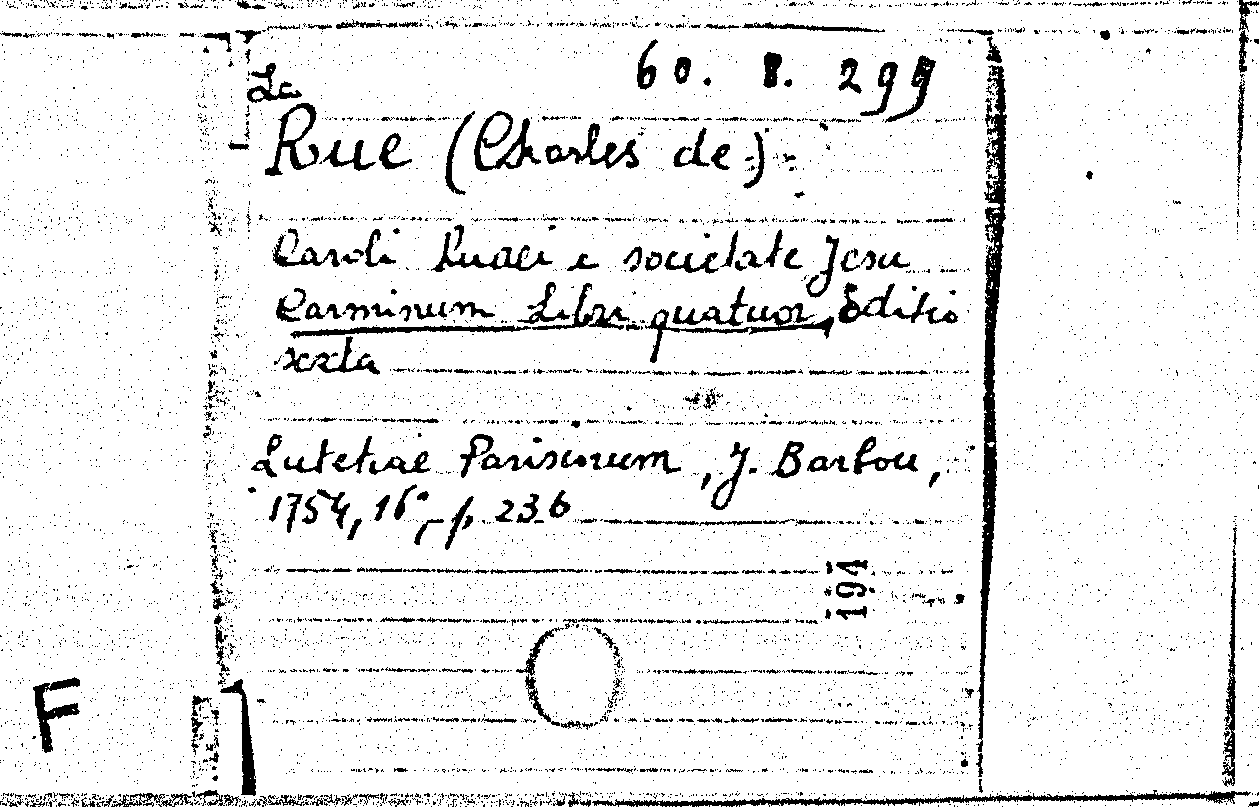 60. 8. 299
La
Rue (Charles de)
Caroli Ruaei e societate Jesu
Carminum Libri quatuor, Editio
sexta
Lutetiae Parisiorum, J. Barbou,
1754, 16°, p. 236
194
F